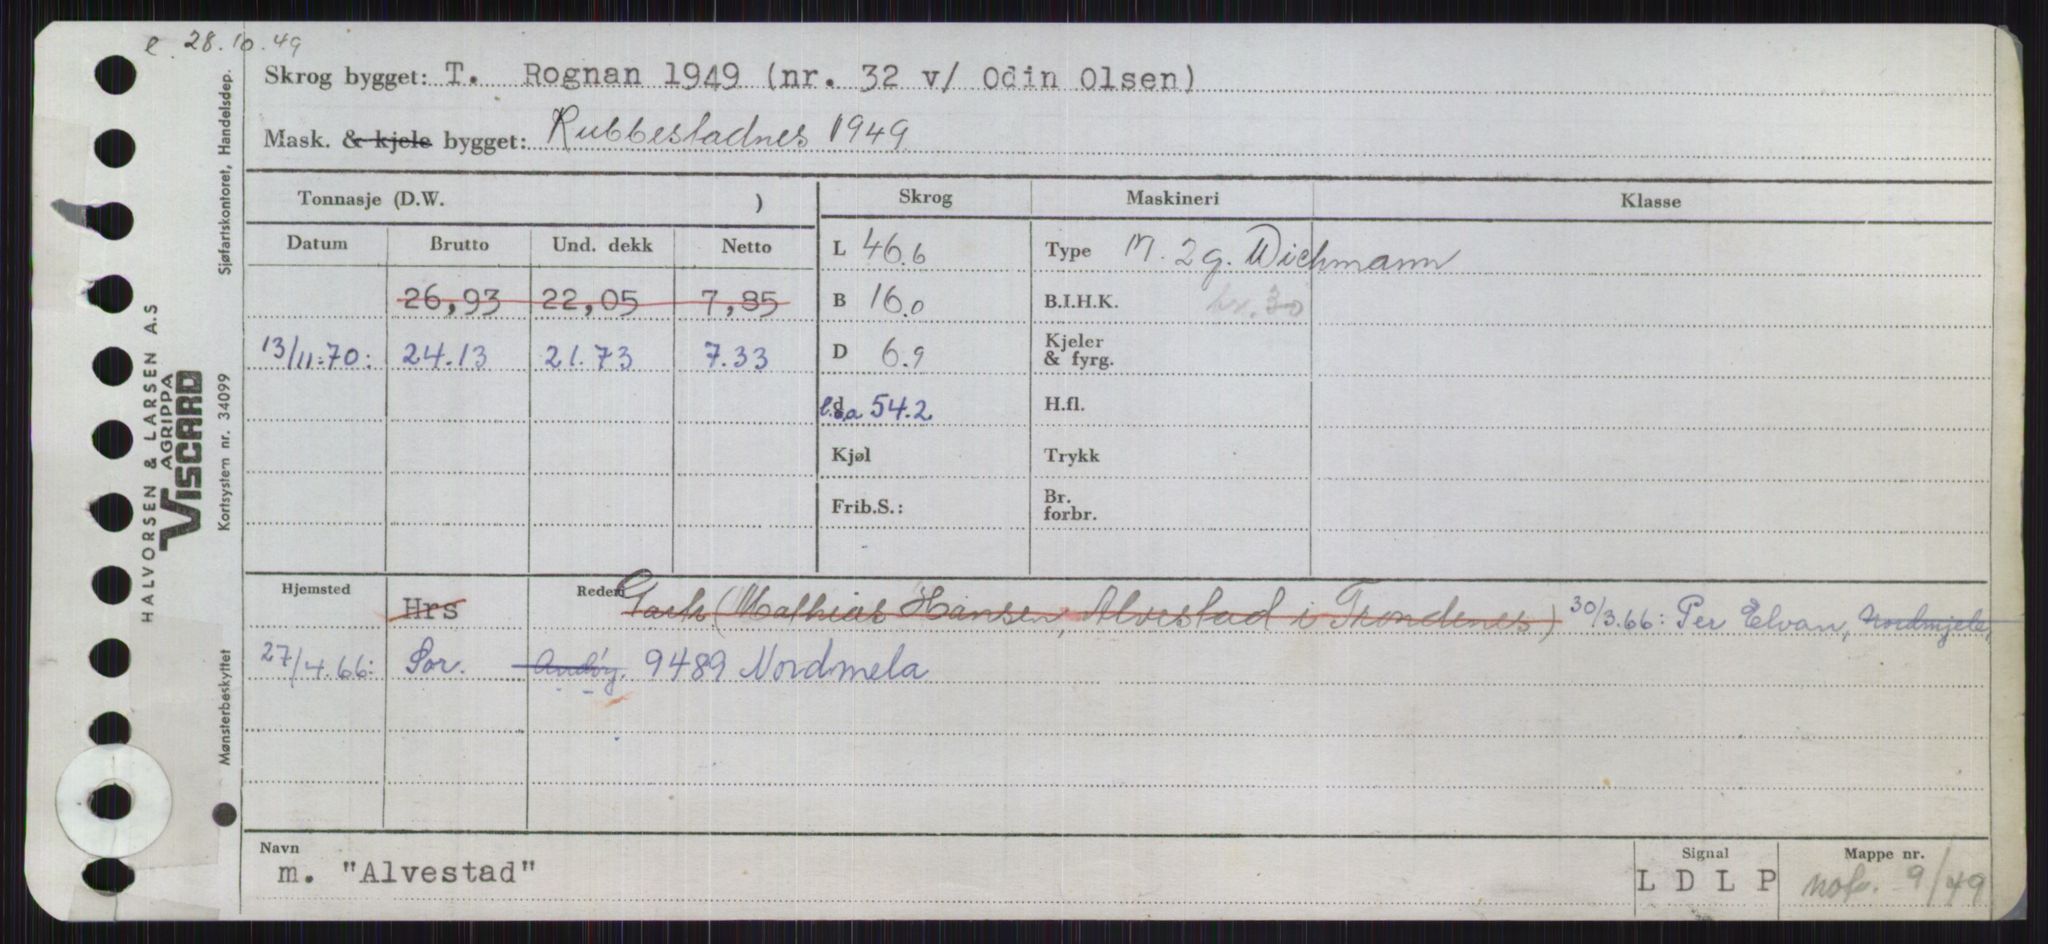 e 28.10.49
Skrog bygget: T. Rognan 1949 (nr. 32 v/ Odin Olsen)
Mask. & kjele bygget: Rubbestadnes 1949
Tonnasje (D.W. ) Skrog Maskineri Klasse
Datum Brutto Und. dekk Netto
L 46.6 Type M. 2 g. Wichmann
26,93 22,05 7,85 B 16.0 B.I.H.K. hr. 30
13/11-70: 24.13 21.73 7.33 D 6.9 Kjeler & fyrg.
d l.o.a 54.2 H.fl.
Kjøl Trykk
Frib.S.: Br. forbr.
Hjemsted Hrs Rederi (Mathias Hansen, Alvestad i Trondenes) 30/3.66: Per Elvan, Nordmjele,
27/4.66: Sor. Andøy. 9489 Nordmela
Navn
m. "Alvestad"
Signal
L D L P
Mappe nr.
nofo. 9/49
Sjøfartskontoret, Handelsdep.
Kortsystem nr. 34099
Mønsterbeskyttet
HALVORSEN & LARSEN A.S
AGRIPPA
VISCARD